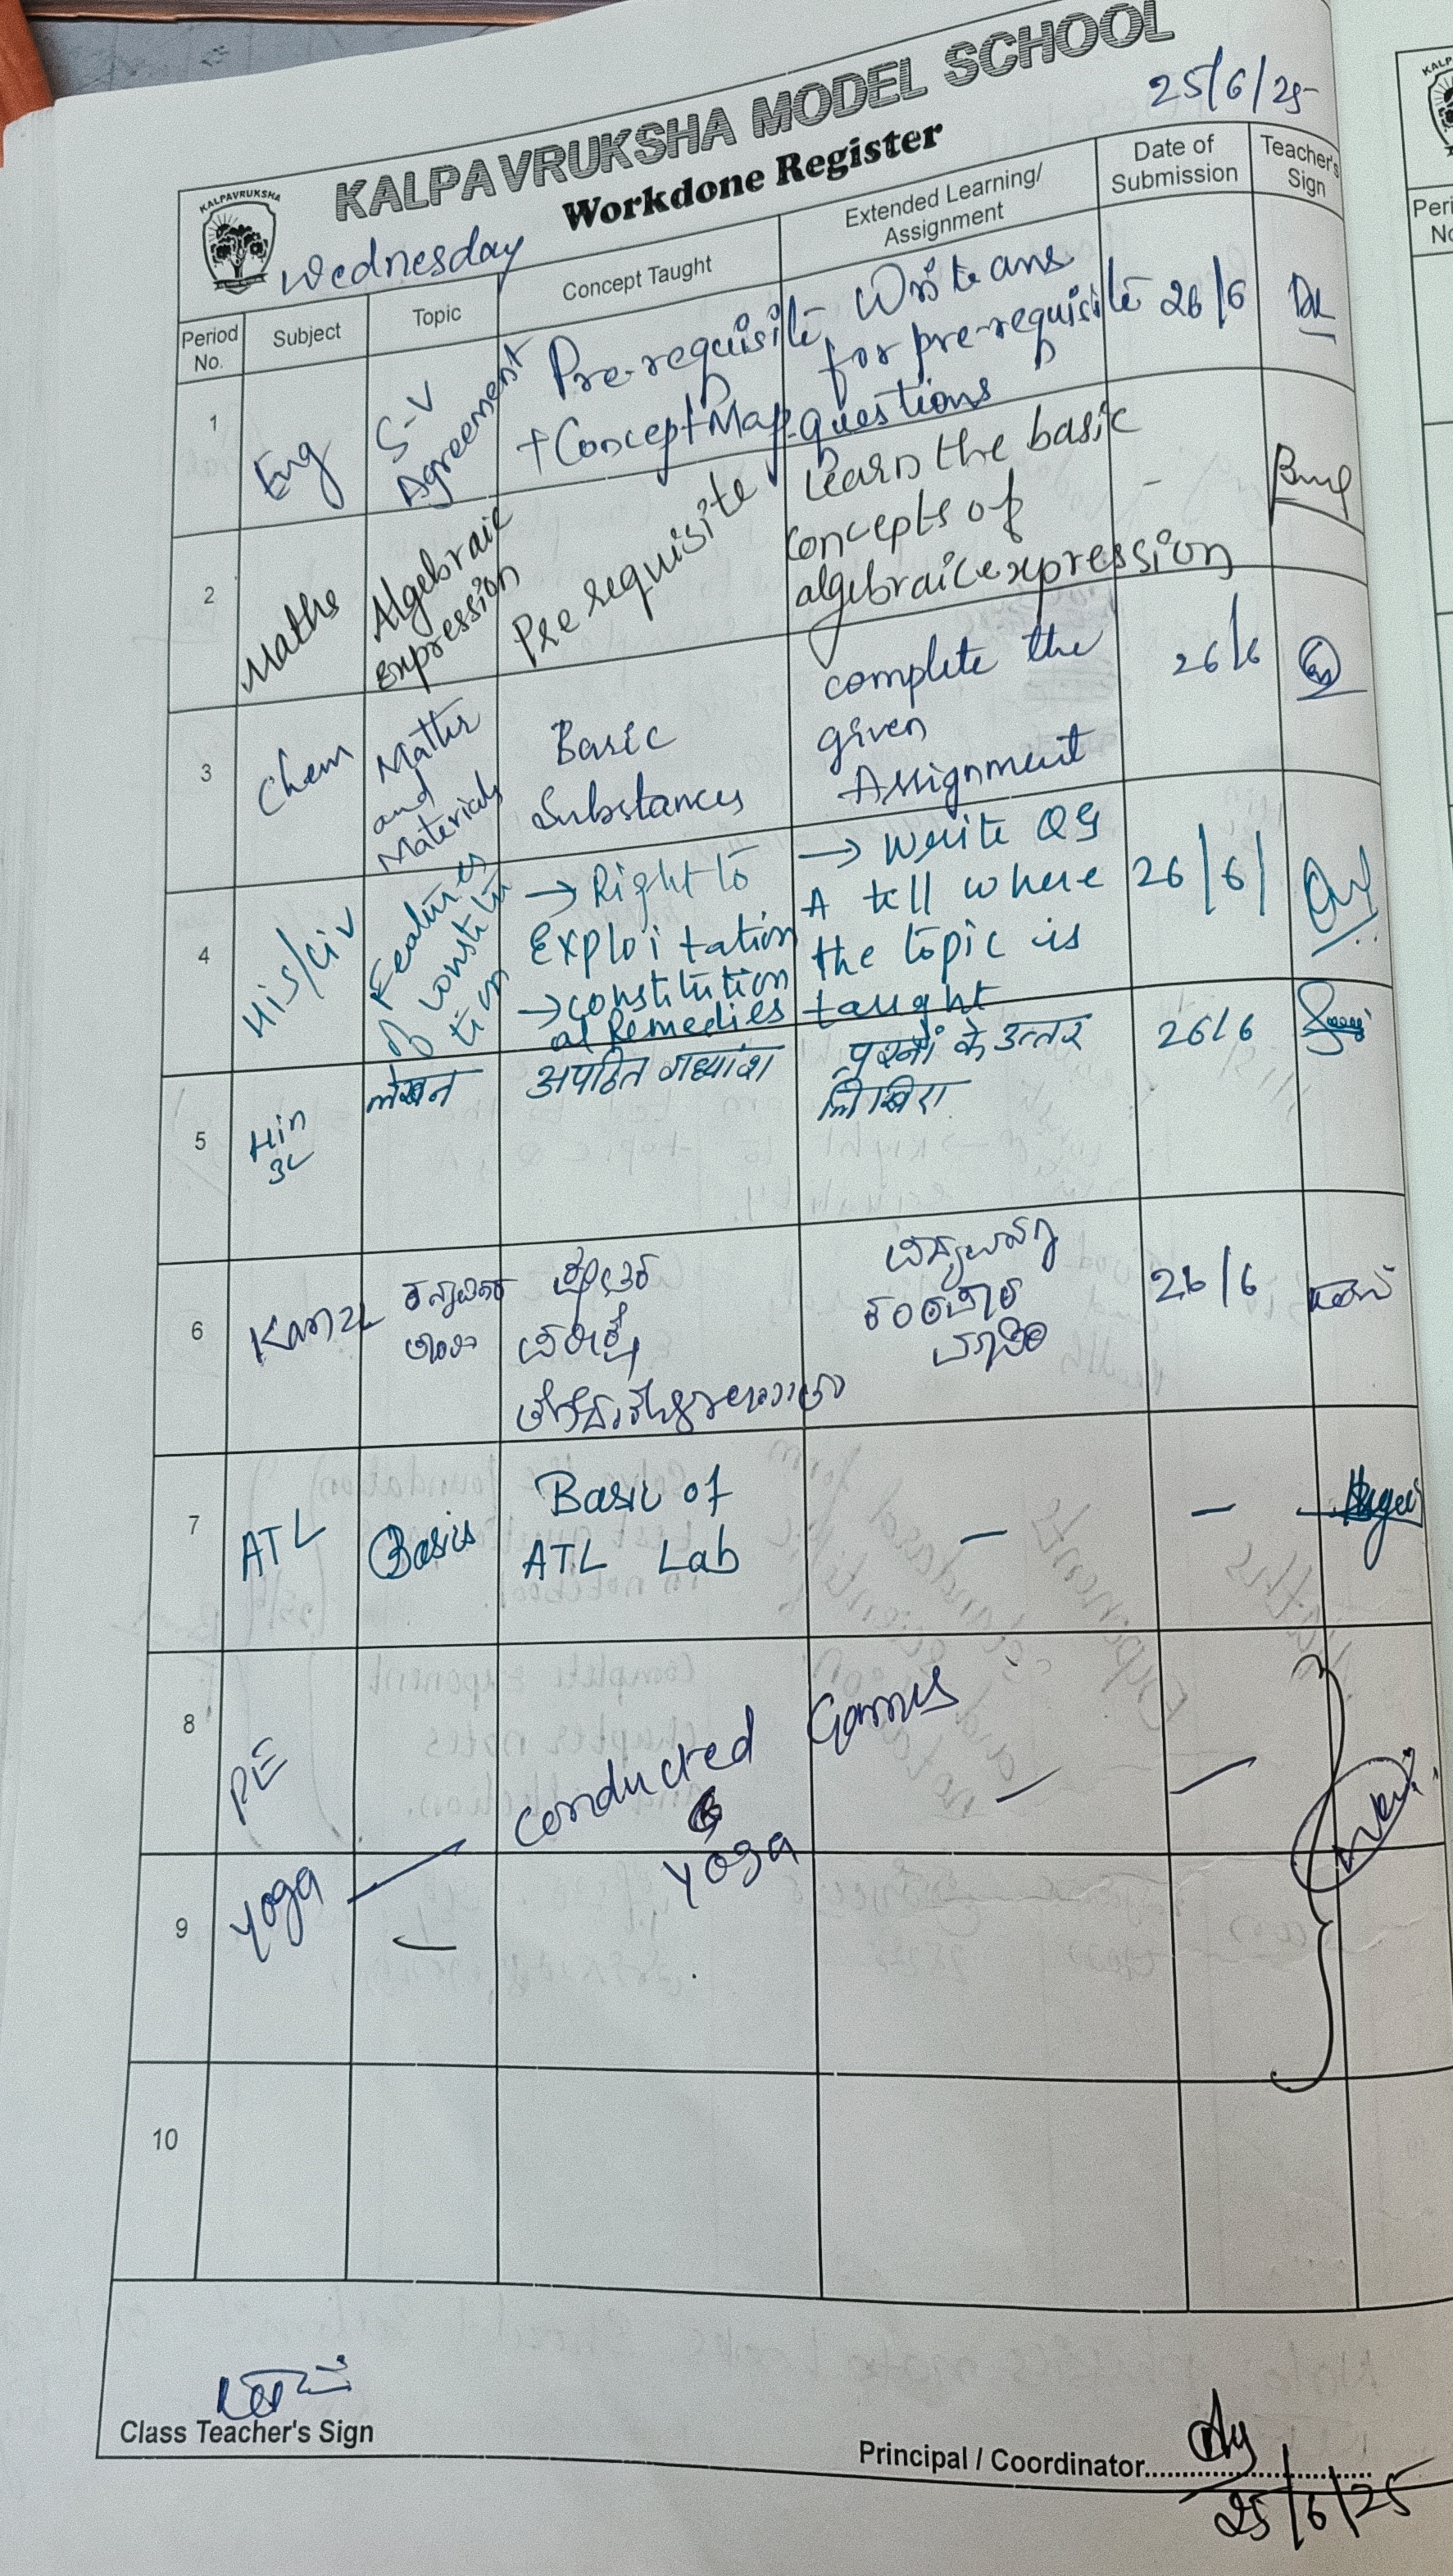 KALPAVRUKSHA MODEL SCHOOL
25/6/25
KALPAVRUKSHA
Workdone Register
Wednesday
Period No.
Subject
Topic
Concept Taught
Extended Learning/ Assignment
Date of Submission
Teacher's Sign
1
Eng
S-V
Agreement
Pre-requisite
+ Concept Map
Write ans
for pre-requisite
questions
26/6
2
Maths
Algebraic
Expression
Pre requisite
Learn the basic
concepts of
algebraic expression
-
3
Chem
Matter
and
Materials
Basic
Substances
complete the
given
Assignment
26/6
4
His/Civ
Features
of constitu
tion
→ Right to
Exploitation
→ constitution
al Remedies
→ write QS
A tell where
the topic is
taught
26/6/
5
Hin
3L
लेखन
अपठित गद्यांश
प्रश्नों के उत्तर
लिखिए
26/6
6
Kan2L
26/6
7
ATL
Basics
Basic of
ATL Lab
-
-
8
PE
conducted Games
&
Yoga
-
-
9
Yoga
-
10
Class Teacher's Sign
Principal / Coordinator
25/6/25